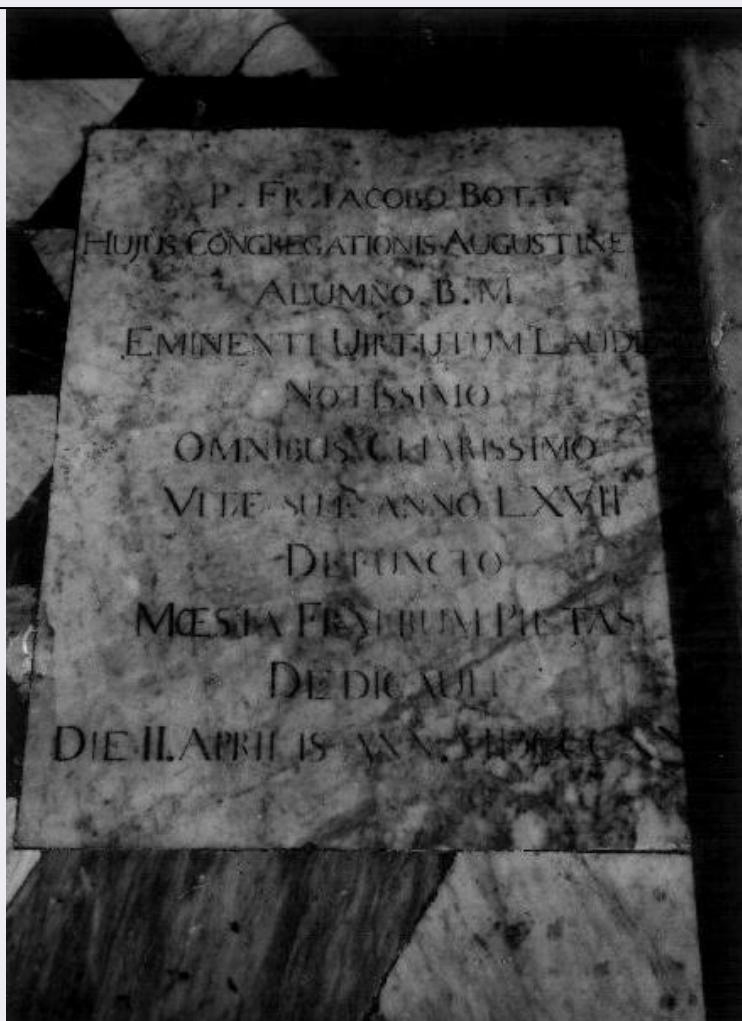 P. FR. IACOBO BOTTI
HUJUS CONGREGATIONIS AUGUSTINE
ALUMNO B. M
EMINENTI UIRTUTUM LAUDE
NOTISSIMO
OMNIBUS CLARISSIMO
VITÆ SUÆ ANNO LXVII
DEFUNCTO
MŒSTA FRATRUM PIETAS
DEDICAUIT
DIE II. APRILIS